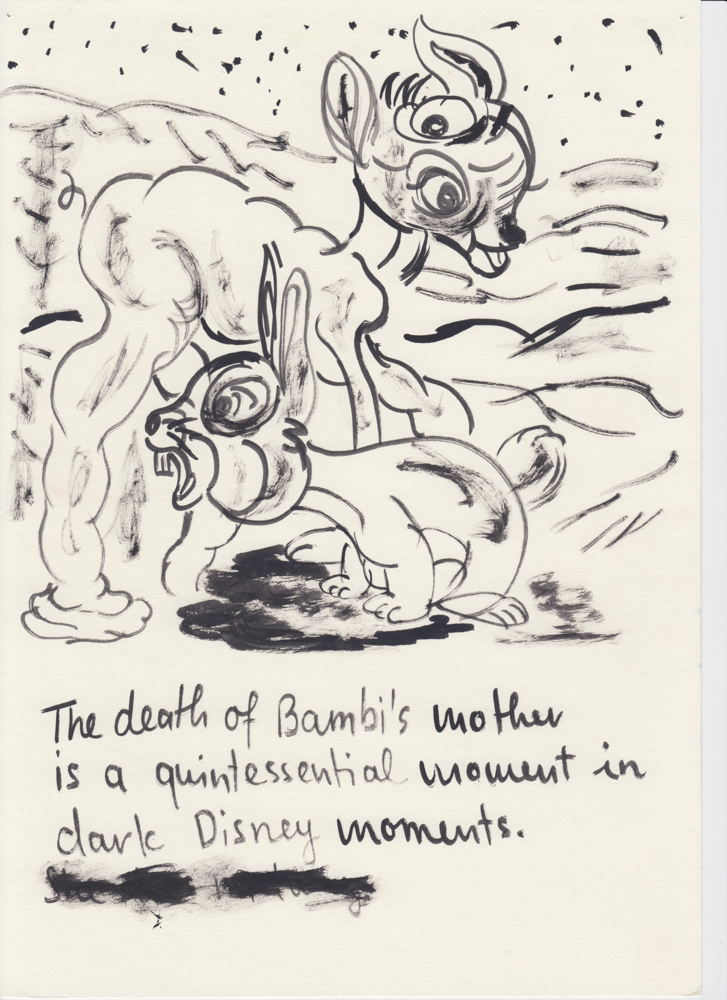 The death of Bambi's mother
is a quintessential moment in
dark Disney moments.